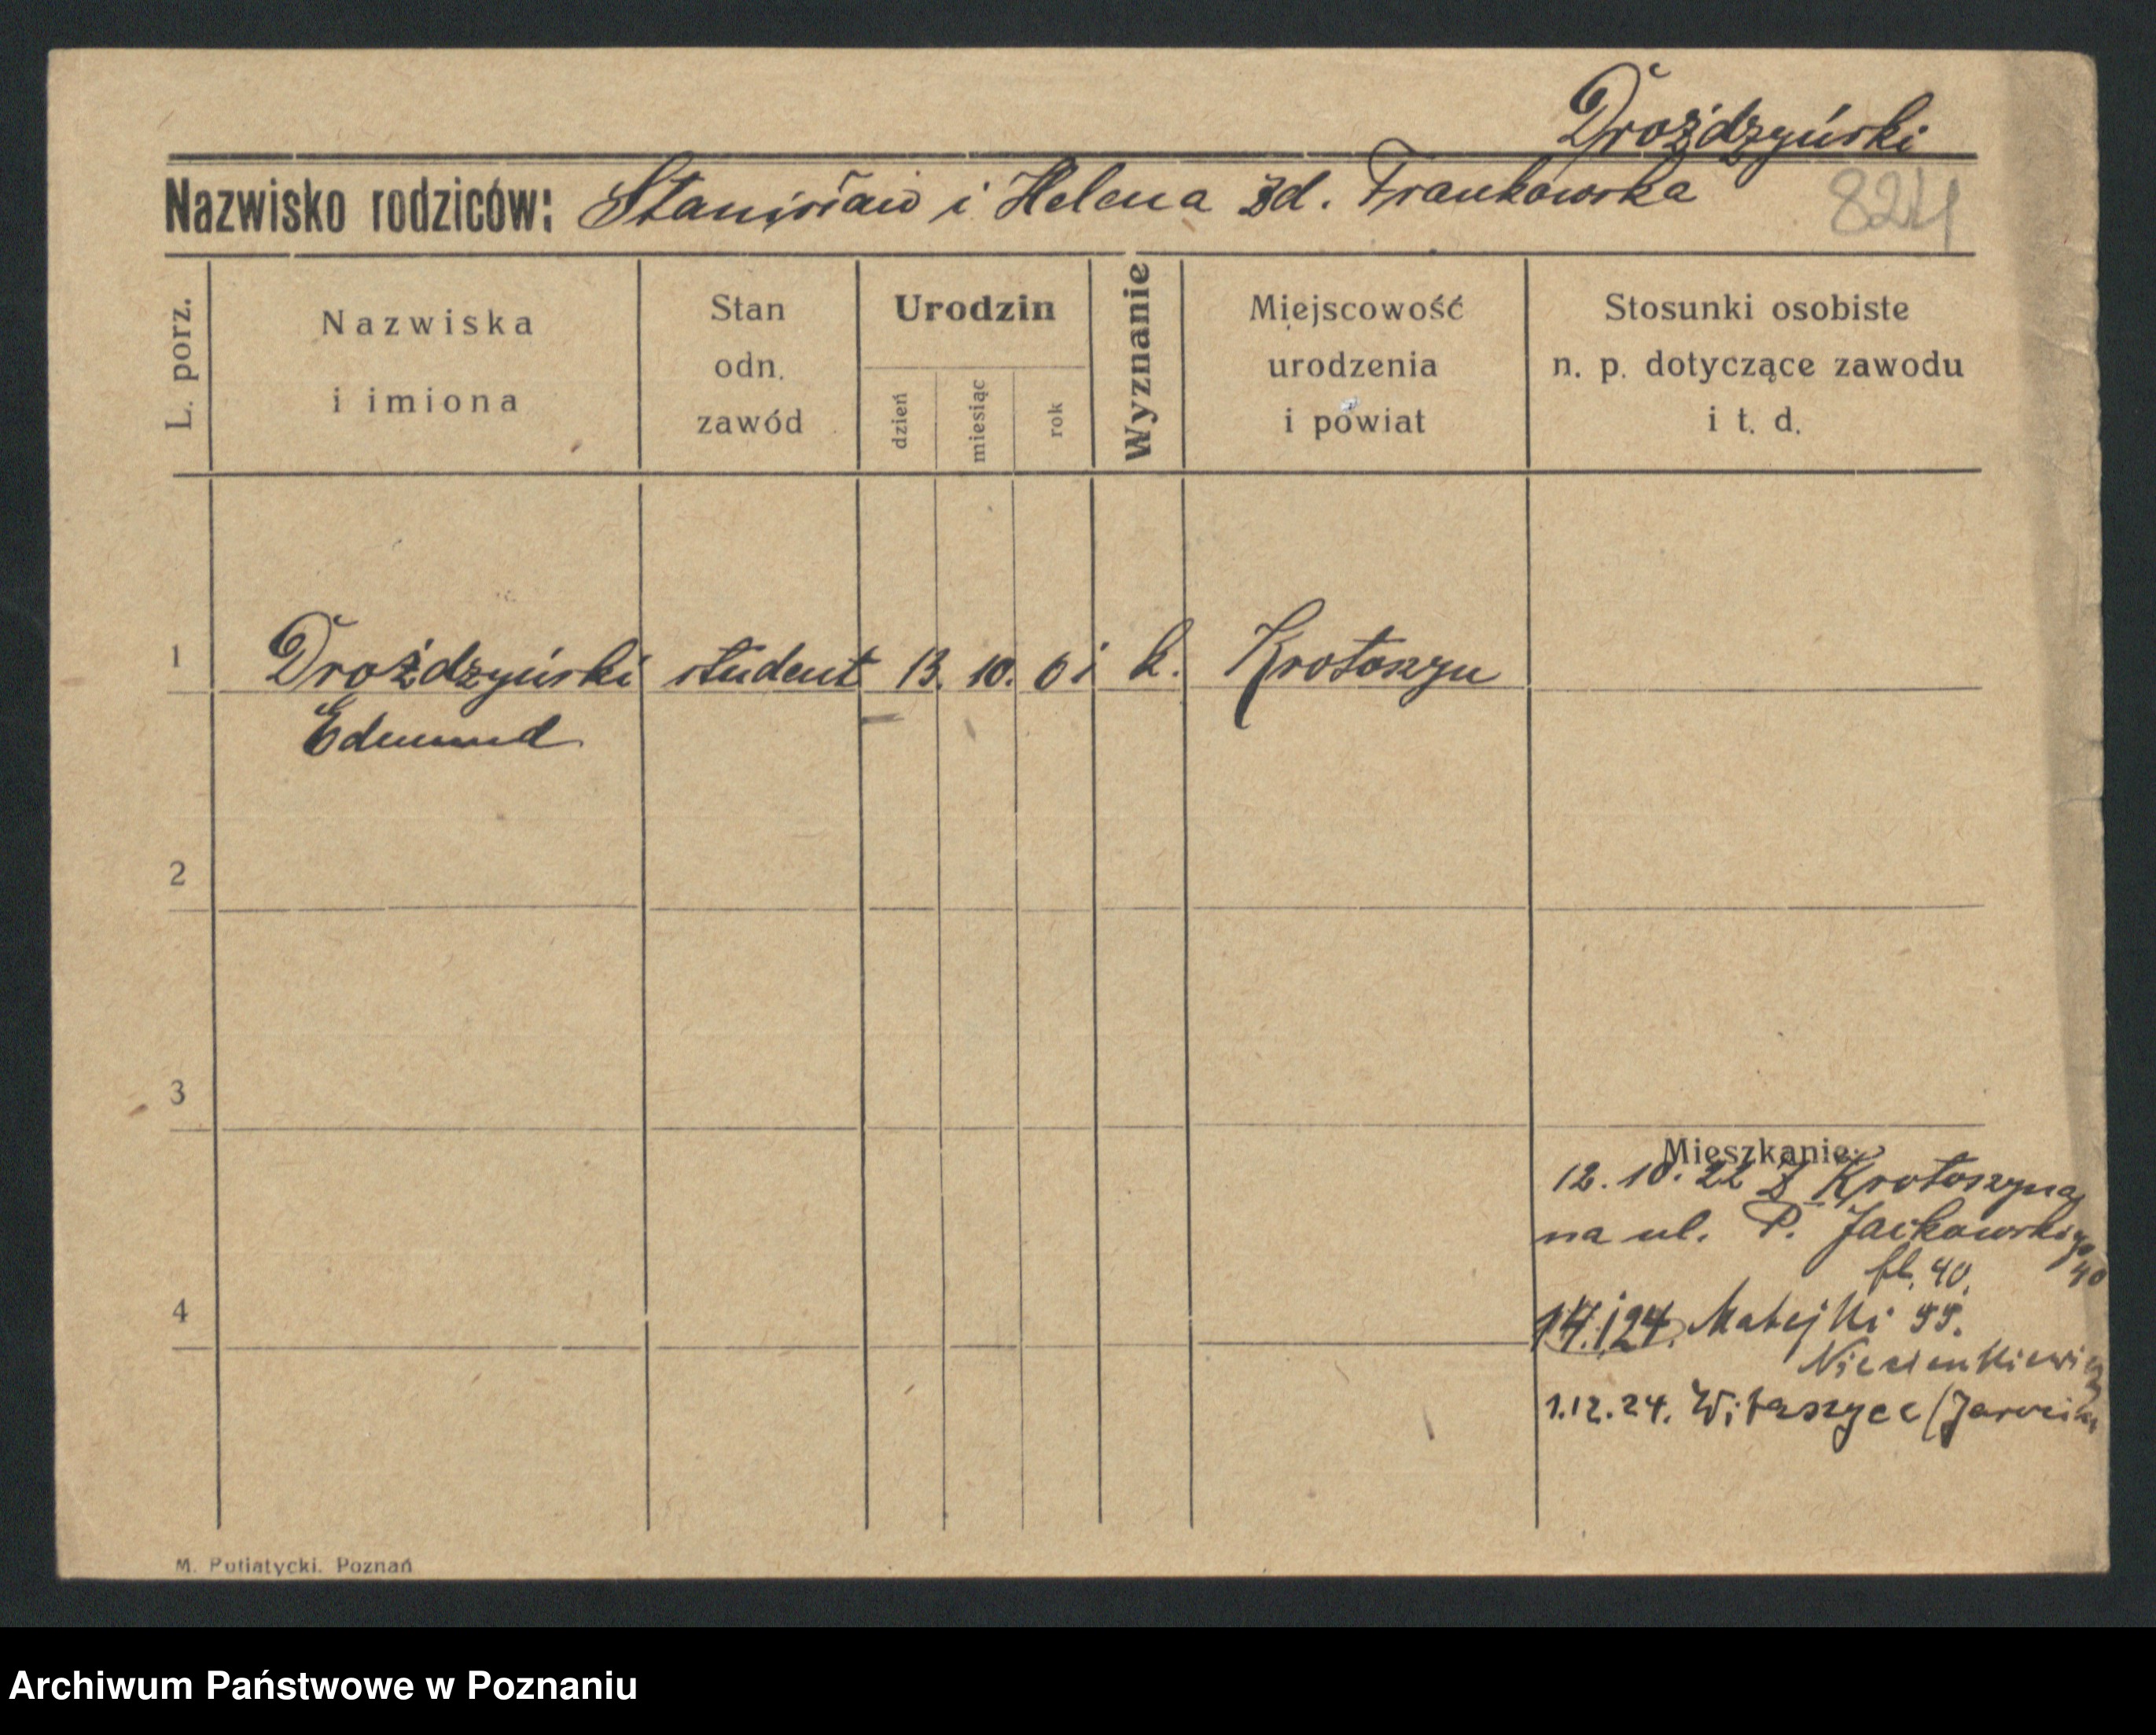 Drożdzyński
Nazwisko rodziców: Stanisław i Helena zd. Frankowska
824
L. porz.
Nazwiska
i imiona
Stan
odn.
zawód
Urodzin
dzień
miesiąc
rok
Wyznanie
Miejscowość
urodzenia
i powiat
Stosunki osobiste
n. p. dotyczące zawodu
i t. d.
1 Drożdzyński student 13. 10. 01 k. Krotoszyn
Edmund
2
3
Mieszkanie:
12. 10. 22 z Krotoszyna
na ul. P. Jackowskiego
40. 40
4
24. Matejki 55.
1.12.24. Witaszyce (Jarocin
M. Putiatycki. Poznań
Archiwum Państwowe w Poznaniu